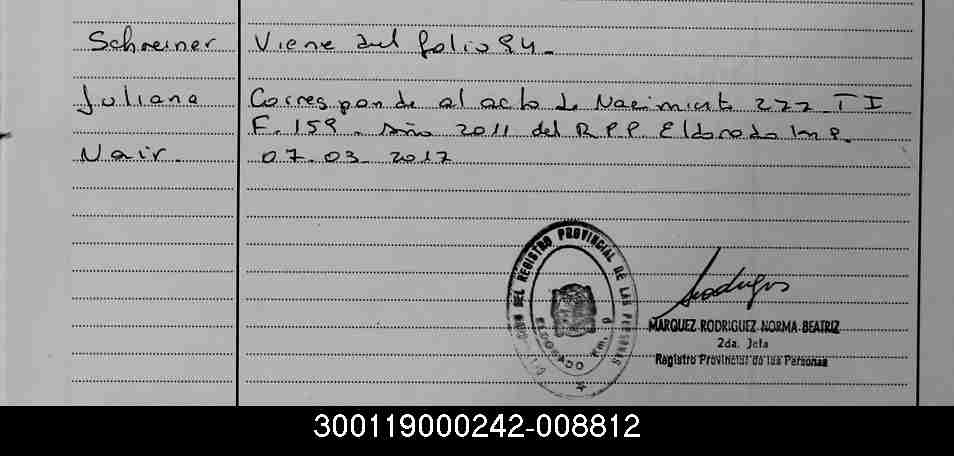 Schreiner
Juliana
Nair.
Viene del folio 94.
Corresponde al acta de Nacimiento 272 TI
F. 159. Año 2011 del R.P.P. Eldorado Mnes.
07.03.2017
REGISTRO PROVINCIAL DE LAS PERSONAS
ELDORADO
MARQUEZ RODRIGUEZ NORMA BEATRIZ
2da. Jefa
Registro Provincial de las Personas
300119000242-008812